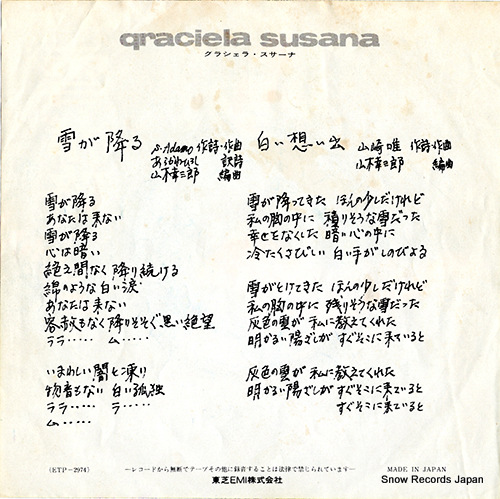 graciela susana
グラシェラ・スサーナ
雪が降る
S. Adamo 作詩・作曲
あらかわひろし 訳詩
山木幸三郎 編曲
雪が降る
あなたは来ない
雪が降る
心は暗い
絶え間なく降り続ける
綿のような白い涙
あなたは来ない
容赦もなく降りそそぐ黒い絶望
ララ…… ム……
いまわしい闇と凍り
物音もない白い孤独
ララ…… ラ……
ム……
白い想い出
山崎唯 作詩・作曲
山木幸三郎 編曲
雪が降ってきた ほんの少しだけれど
私の胸の中に 積りそうな雪だった
幸せをなくした 暗い心の中に
冷たくさびしい 白い手がしのびよる
雪がとけてきた ほんの少しだけれど
私の胸の中に 残りそうな雪だった
灰色の雲が 私に教えてくれた
明かるい陽ざしが すぐそこに来ていると
灰色の雲が 私に教えてくれた
明かるい陽ざしが すぐそこに来ていると
すぐそこに来ていると
(ETP-2974)
—レコードから無断でテープその他に録音することは法律で禁じられています—
MADE IN JAPAN
東芝EMI株式会社
Snow Records Japan